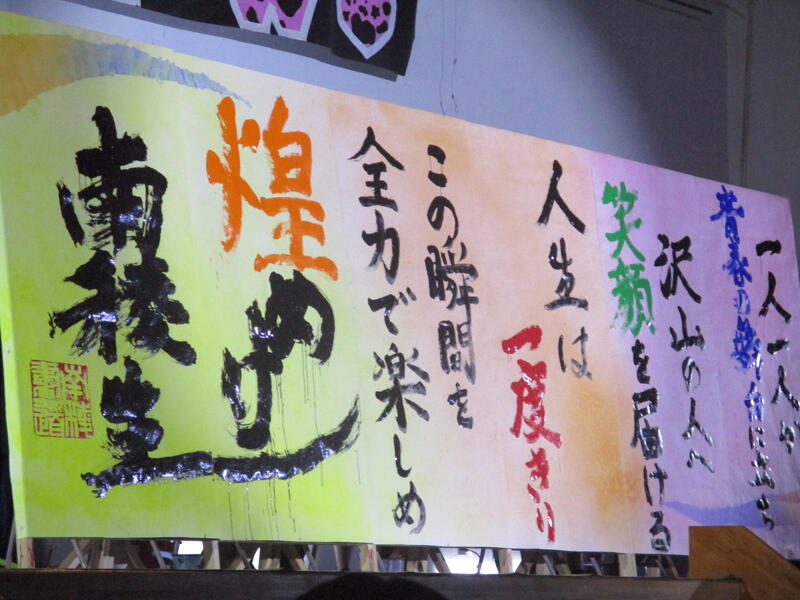 一人一人が
青春の舞台に立ち
沢山の人へ
笑顔を届ける
人生は
一度きり
この瞬間を
全力で楽しめ
煌めけ
南稜生